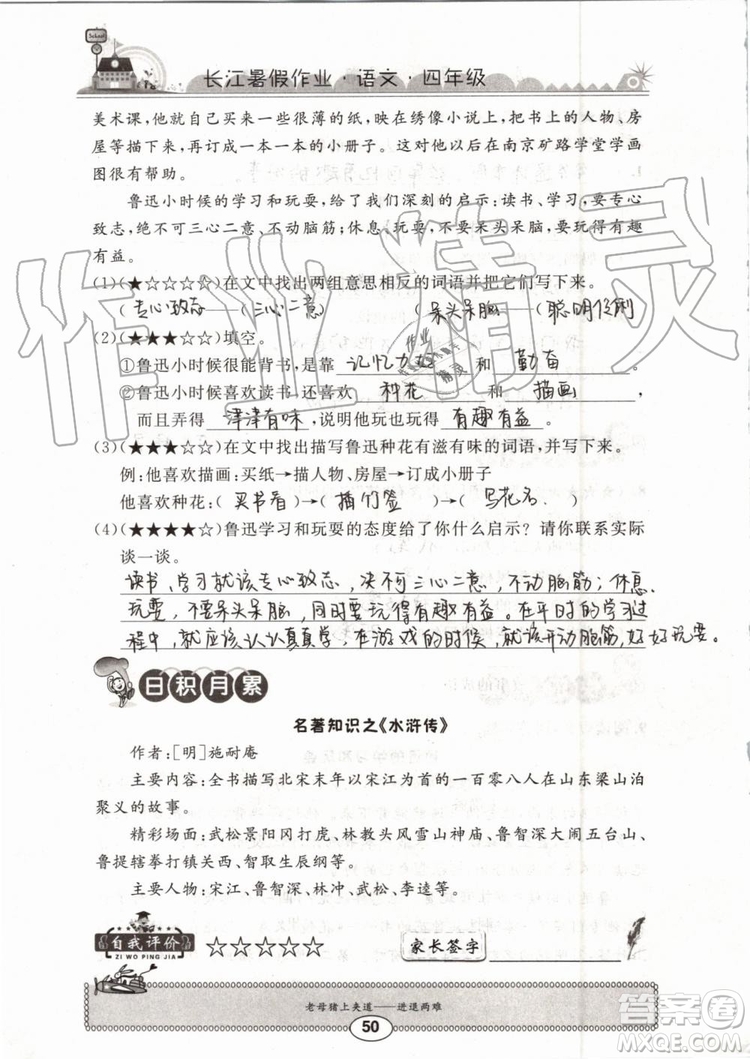 School
长江暑假作业·语文·四年级
美术课,他就自己买来一些很薄的纸,映在绣像小说上,把书上的人物、房
屋等描下来,再订成一本一本的小册子。这对他以后在南京矿路学堂学画
图很有帮助。
鲁迅小时候的学习和玩耍,给了我们深刻的启示:读书、学习,要专心
致志,绝不可三心二意、不动脑筋;休息、玩耍,不要呆头呆脑,要玩得有趣
有益。
(1)(★☆☆☆☆)在文中找出两组意思相反的词语并把它们写下来。
(专心致志)——(三心二意) (呆头呆脑)——(聪明伶俐)
(2)(★★★☆☆)填空。
①鲁迅小时候很能背书,是靠 记忆力好 和 勤奋 。
②鲁迅小时候喜欢读书,还喜欢 种花 和 描画 ,
而且弄得 津津有味 ,说明他玩也玩得 有趣有益 。
(3)(★★★★☆)在文中找出描写鲁迅种花有滋有味的词语,并写下来。
例:他喜欢描画:买纸→描人物、房屋→订成小册子
他喜欢种花:( 买书看 )→( 插竹签 )→( 写花名 )
(4)(★★★★☆)鲁迅学习和玩耍的态度给了你什么启示?请你联系实际
谈一谈。
读书、学习就该专心致志,决不可三心二意,不动脑筋;休息、
玩耍,不要呆头呆脑,同时要玩得有趣有益。在平时的学习过
程中,就应该认认真真学,在游戏的时候,就该开动脑筋,好好玩耍。
日积月累
名著知识之《水浒传》
作者:[明]施耐庵
主要内容:全书描写北宋末年以宋江为首的一百零八人在山东梁山泊
聚义的故事。
精彩场面:武松景阳冈打虎、林教头风雪山神庙、鲁智深大闹五台山、
鲁提辖拳打镇关西、智取生辰纲等。
主要人物:宋江、鲁智深、林冲、武松、李逵等。
自我评价
ZI WO PING JIA
☆☆☆☆☆
家长签字
老母猪上夹道——进退两难
50
作业精灵
作业精灵
答案圈
MXQE.COM